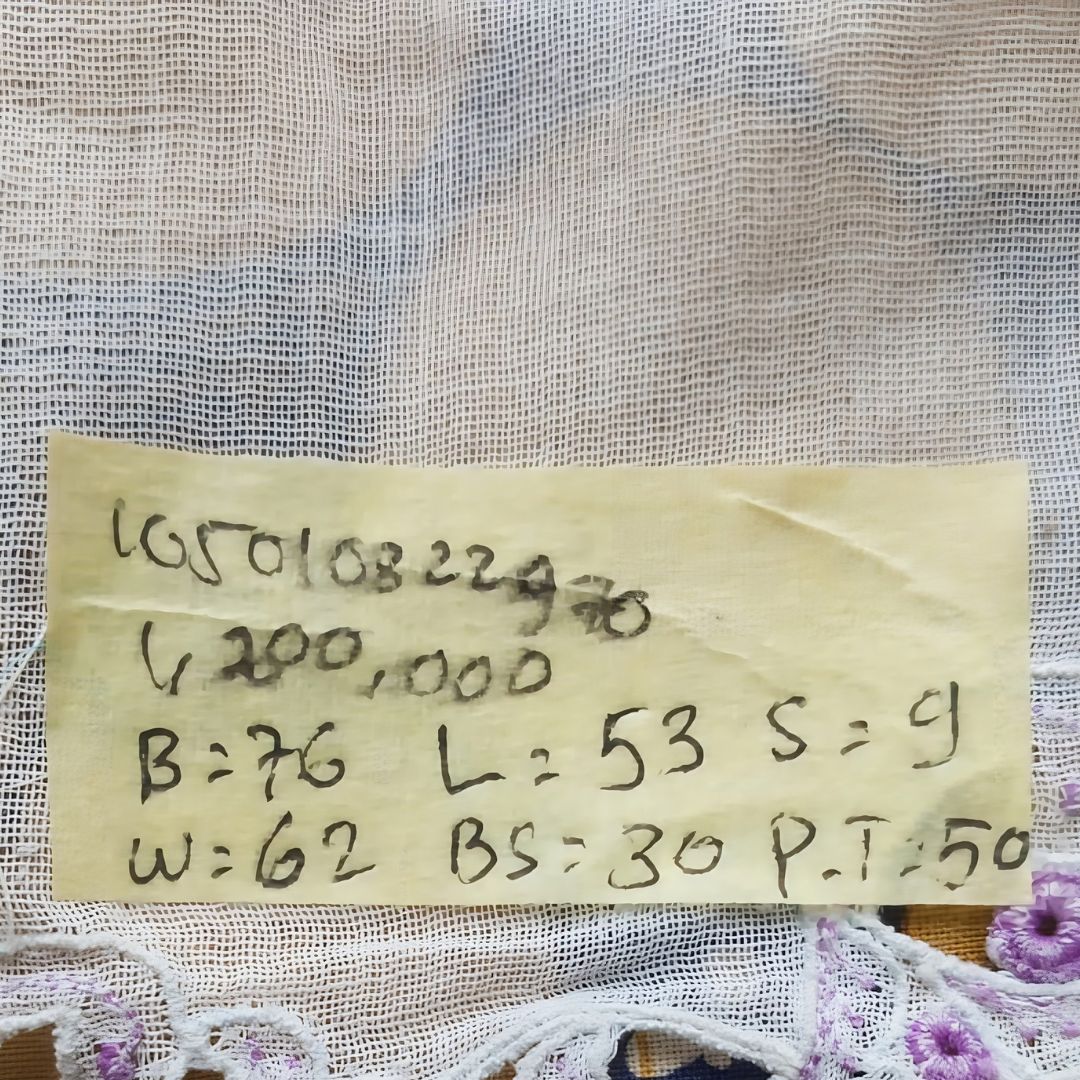 1050108322970
L, 200,000
B=76 L=53 S=9
W=62 BS=30 P.T=50